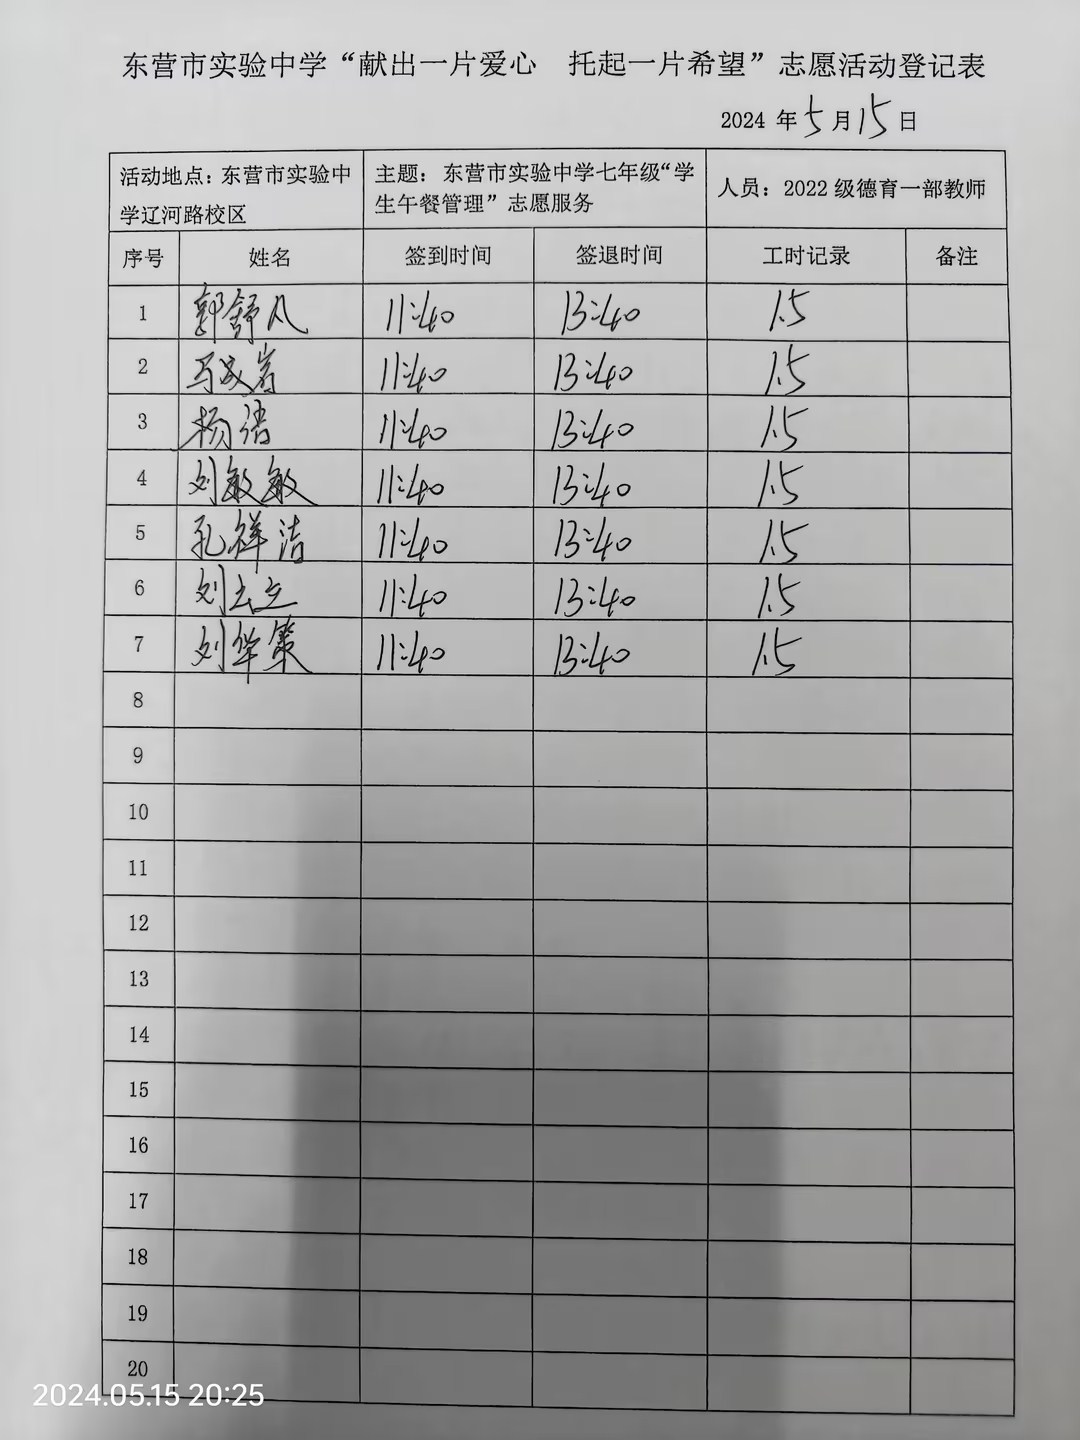 东营市实验中学“献出一片爱心 托起一片希望”志愿活动登记表
2024 年 5 月 15 日
活动地点：东营市实验中学辽河路校区 主题：东营市实验中学七年级“学生午餐管理”志愿服务 人员：2022 级德育一部教师
序号 姓名 签到时间 签退时间 工时记录 备注
1 郭舒凡 11:40 13:40 1.5
2 马文岩 11:40 13:40 1.5
3 杨洁 11:40 13:40 1.5
4 刘敏敏 11:40 13:40 1.5
5 孔祥洁 11:40 13:40 1.5
6 刘云立 11:40 13:40 1.5
7 刘华策 11:40 13:40 1.5
8
9
10
11
12
13
14
15
16
17
18
19
20
2024.05.15 20:25